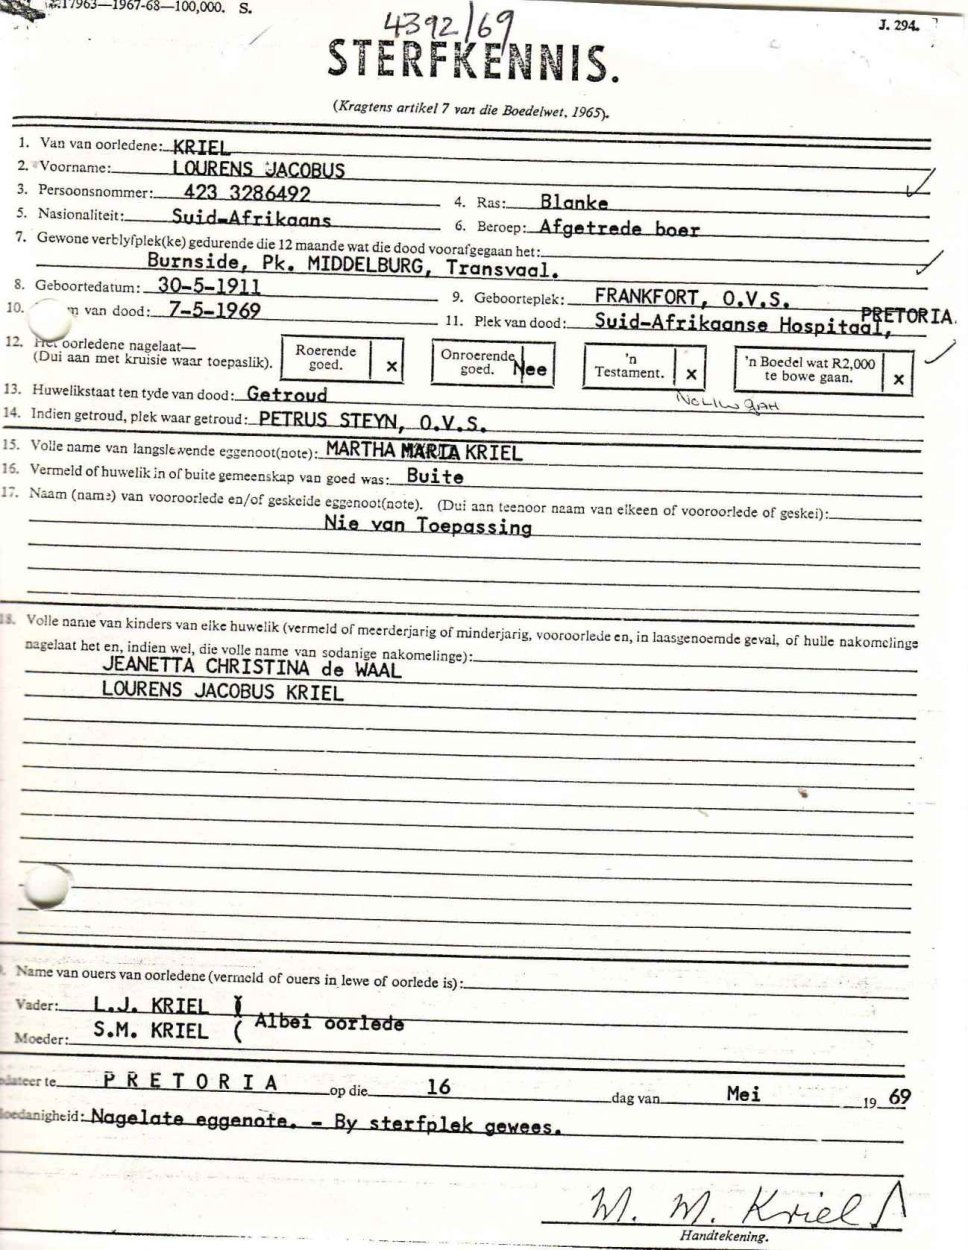 17963—1967-68—100,000. S.
J. 294.
4392/69
STERFKENNIS.
(Kragtens artikel 7 van die Boedelwet, 1965).
1. Van van oorledene: KRIEL
2. Voorname: LOURENS JACOBUS
3. Persoonsnommer: 423 3286492 4. Ras: Blanke
5. Nasionaliteit: Suid-Afrikaans 6. Beroep: Afgetrede boer
7. Gewone verblyfplek(ke) gedurende die 12 maande wat die dood voorafgegaan het:
Burnside, Pk. MIDDELBURG, Transvaal.
8. Geboortedatum: 30-5-1911 9. Geboorteplek: FRANKFORT, O.V.S.
10. van dood: 7-5-1969 11. Plek van dood: Suid-Afrikaanse Hospitaal, PRETORIA.
12. Het oorledene nagelaat—
(Dui aan met kruisie waar toepaslik).
Roerende goed. x
Onroerende goed. Nee
'n Testament. x
'n Boedel wat R2,000 te bowe gaan. x
13. Huwelikstaat ten tyde van dood: Getroud
14. Indien getroud, plek waar getroud: PETRUS STEYN, O.V.S.
15. Volle name van langslewende eggenoot(note): MARTHA MARIA KRIEL
16. Vermeld of huwelik in of buite gemeenskap van goed was: Buite
17. Naam (name) van vooroorlede en/of geskeide eggenoot(note). (Dui aan teenoor naam van elkeen of vooroorlede of geskei):
Nie van Toepassing
18. Volle name van kinders van elke huwelik (vermeld of meerderjarig of minderjarig, vooroorlede en, in laasgenoemde geval, of hulle nakomelinge
nagelaat het en, indien wel, die volle name van sodanige nakomelinge):
JEANETTA CHRISTINA de WAAL
LOURENS JACOBUS KRIEL
Name van ouers van oorledene (vermeld of ouers in lewe of oorlede is):
Vader: L.J. KRIEL )
Albei oorlede
Moeder: S.M. KRIEL (
te PRETORIA op die 16 dag van Mei 19 69
Nagelate eggenote. - By sterfplek gewees.
M. M. Kriel
Handtekening.